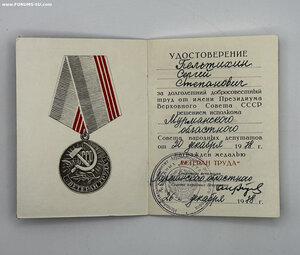 www.FORUMS-su.com
УДОСТОВЕРЕНИЕ
Пельтихин
Сергей
Степанович
за долголетний добросовестный
труд от имени Президиума
Верховного Совета СССР
решением исполкома
Мурманского
областного
Совета народных депутатов
от 20 декабря 1978 г.
награжден медалью
"ВЕТЕРАН ТРУДА"
Мурманского областного
Совета народных депутатов
декабря 1978 г.
ВЕТЕРАН ТРУДА